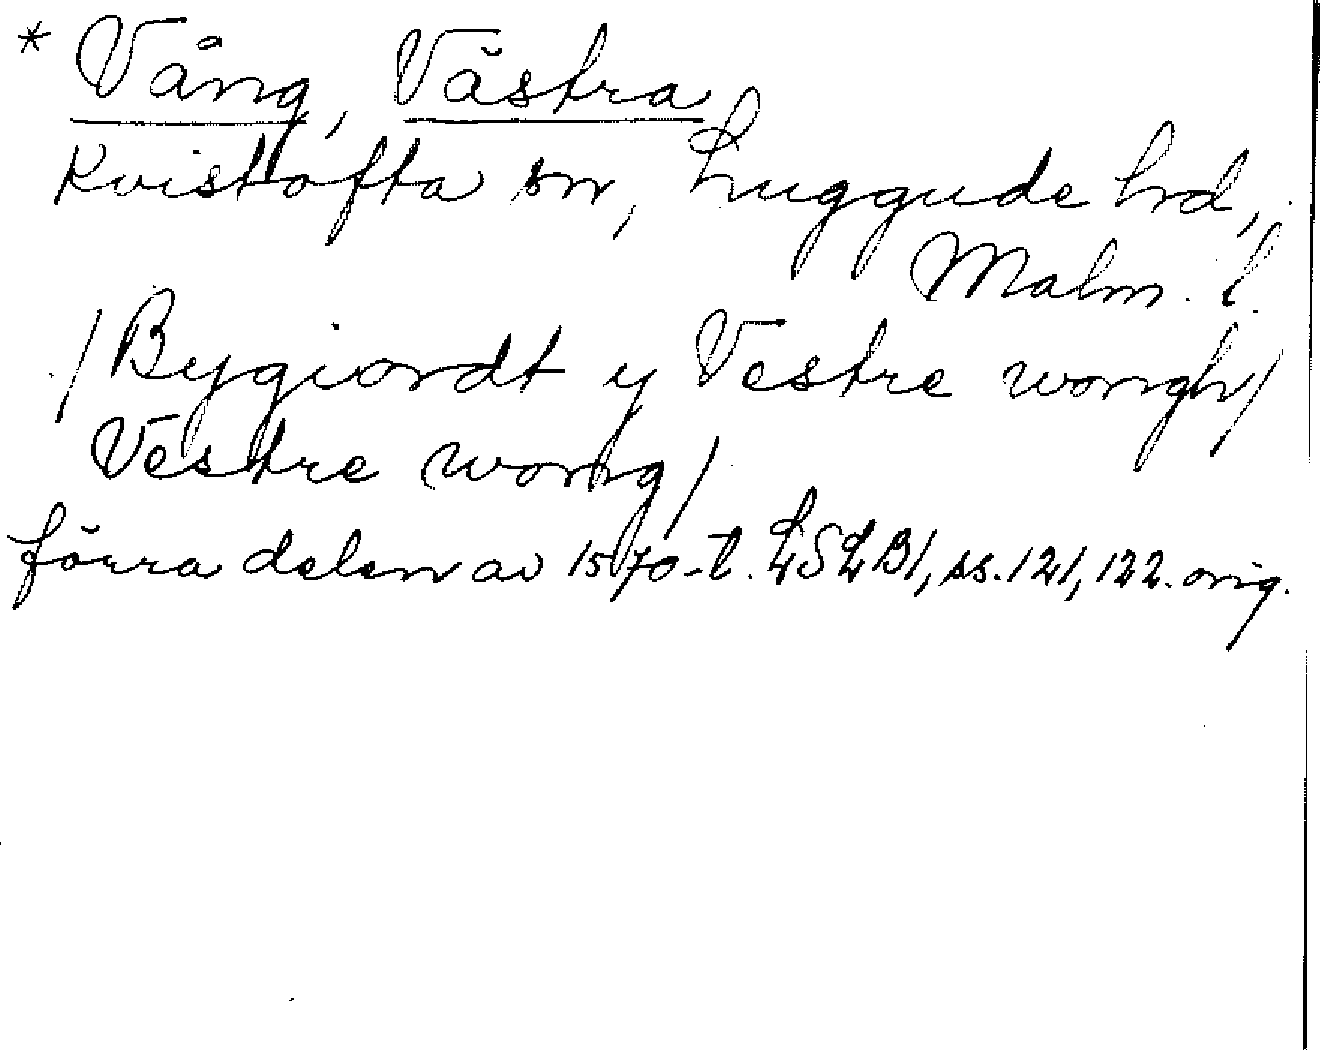 * Vång, Västra
Kvistofta sn, Luggude hd,
Malm. l.
/Bygiordt y Vestre wongh/
Vestre wong/
förra delen av 1570-t. LSLB1, ss. 121, 122. orig.